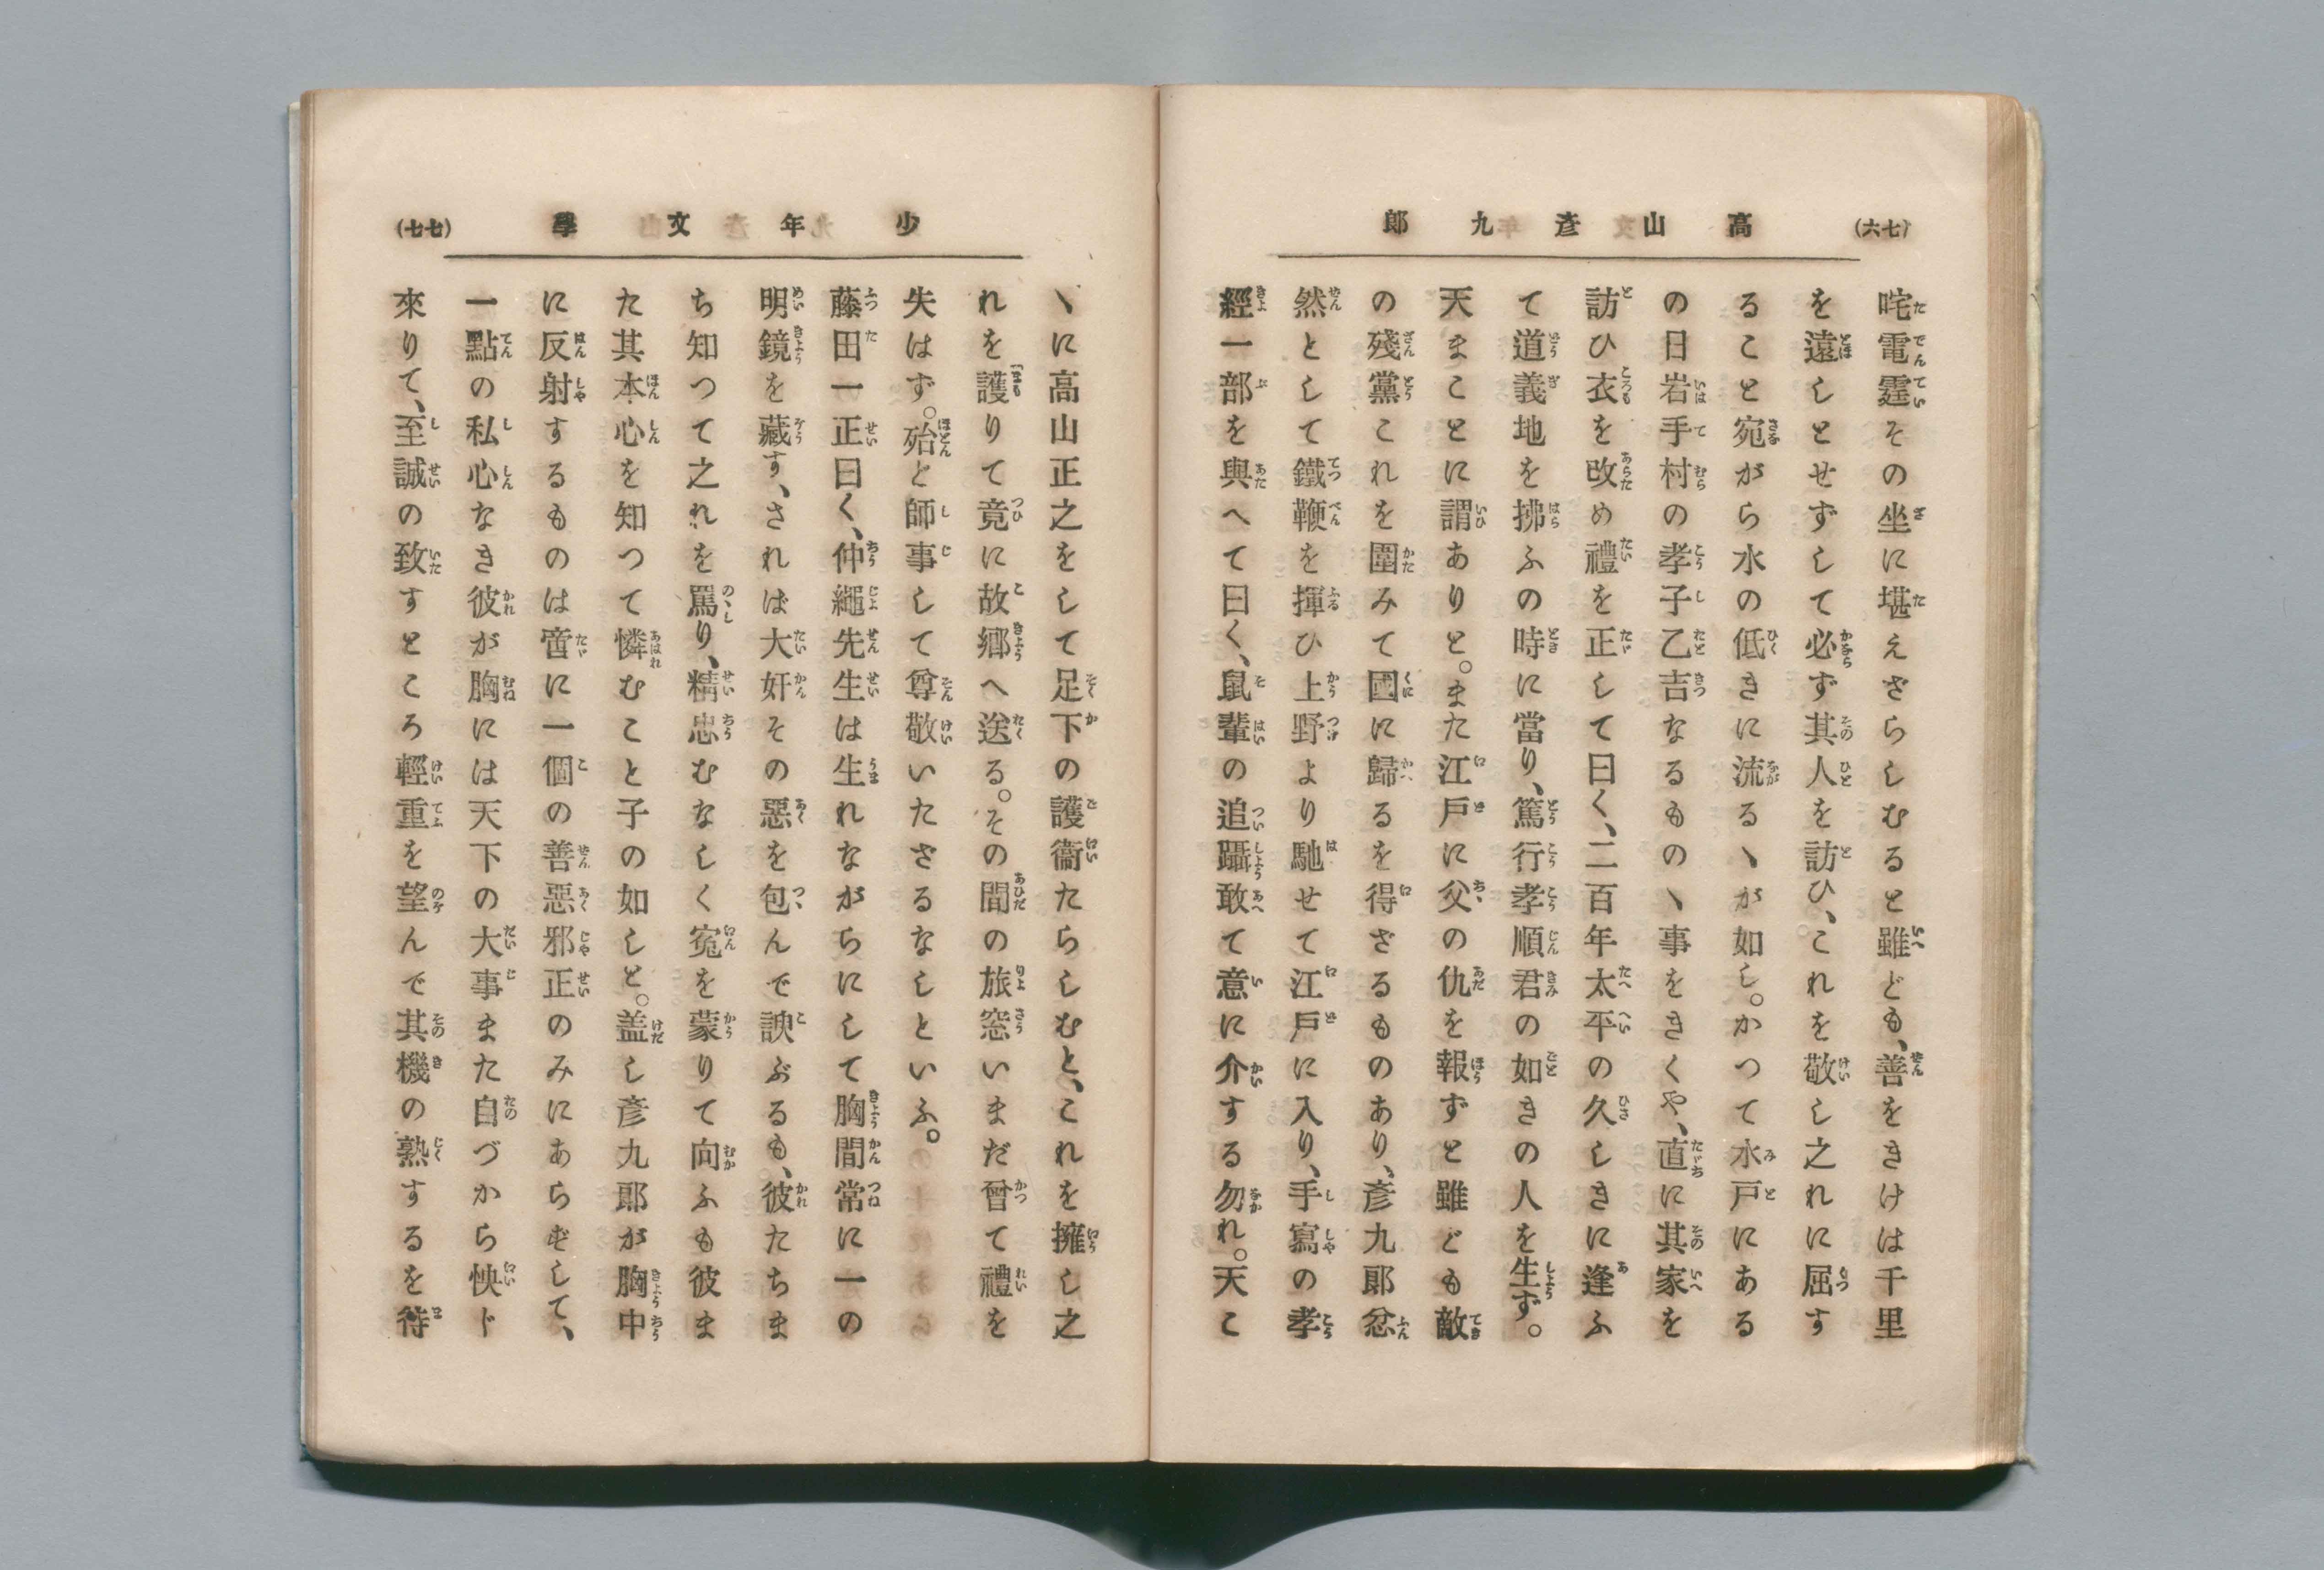 (六七)
高山彥九郎
咤電霆その坐に堪えざらしむると雖ども、善をきけは千里
を遠しとせずして必ず其人を訪ひ、これを敬し之れに屈す
ること宛がら水の低きに流るヽが如し。かつて水戸にある
の日岩手村の孝子乙吉なるものヽ事をきくや、直に其家を
訪ひ衣を改め禮を正して曰く、二百年太平の久しきに逢ふ
て道義地を拂ふの時に當り、篤行孝順君の如きの人を生ず。
天まことに謂ありと。また江戸に父の仇を報ずと雖ども敵
の殘黨これを圍みて國に歸るを得ざるものあり、彥九郎忿
然として鐵鞭を揮ひ上野より馳せて江戸に入り、手寫の孝
經一部を與へて曰く、鼠輩の追躡敢て意に介する勿れ。天こ
少年文學
(七七)
ヽに高山正之をして足下の護衞たらしむと、これを擁し之
れを護りて竟に故郷へ送る。その間の旅窓いまだ曾て禮を
失はず。殆と師事して尊敬いたさるなしといふ。
藤田一正曰く、仲繩先生は生れながらにして胸間常に一の
明鏡を藏す、されば大奸その惡を包んで諛ぶるも、彼たちま
ち知つて之れを罵り、精忠むなしく寃を蒙りて向ふも彼ま
た其本心を知つて憐むこと子の如しと。盖し彥九郎が胸中
に反射するものは啻に一個の善惡邪正のみにあらずして、
一點の私心なき彼が胸には天下の大事また自づから怏ド
來りて、至誠の致すところ輕重を望んで其機の熟するを待